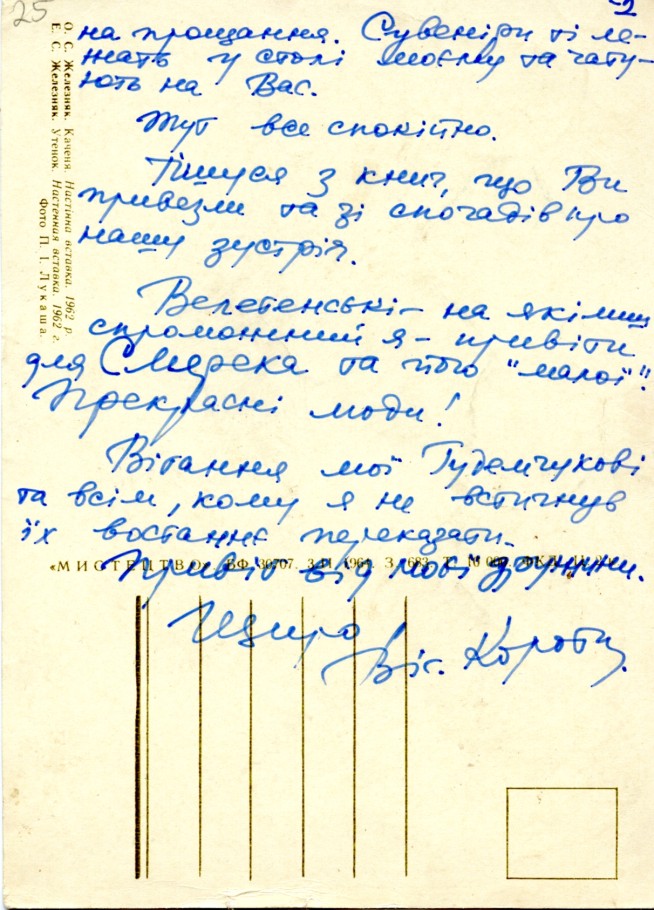 25
-2
на прощання. Сувеніри ті ле-
жать у столі моєму та чату-
ють на Вас.
Тут все спокійно.
Тішуся з книг, що Ви
привезли та зі спогадів про
нашу зустріч.
Велетенські – на які лиш
спроможний я – привіти
для Смерека та його "малої".
Прекрасні люди!
Вітання мої Гудемчукові
та всім, кому я не встигнув
їх востаннє переказати.
Привіт від моєї дружини.
Щиро!
Віт. Коротич.
О. С. Железняк. Каченя. Настінна вставка. 1962 р.
Е. С. Железняк. Утенок. Настенная вставка. 1962 г.
Фото П. І. Лукаша.
«МИСТЕЦТВО». БФ 30707. 1964. З. 683. Т.